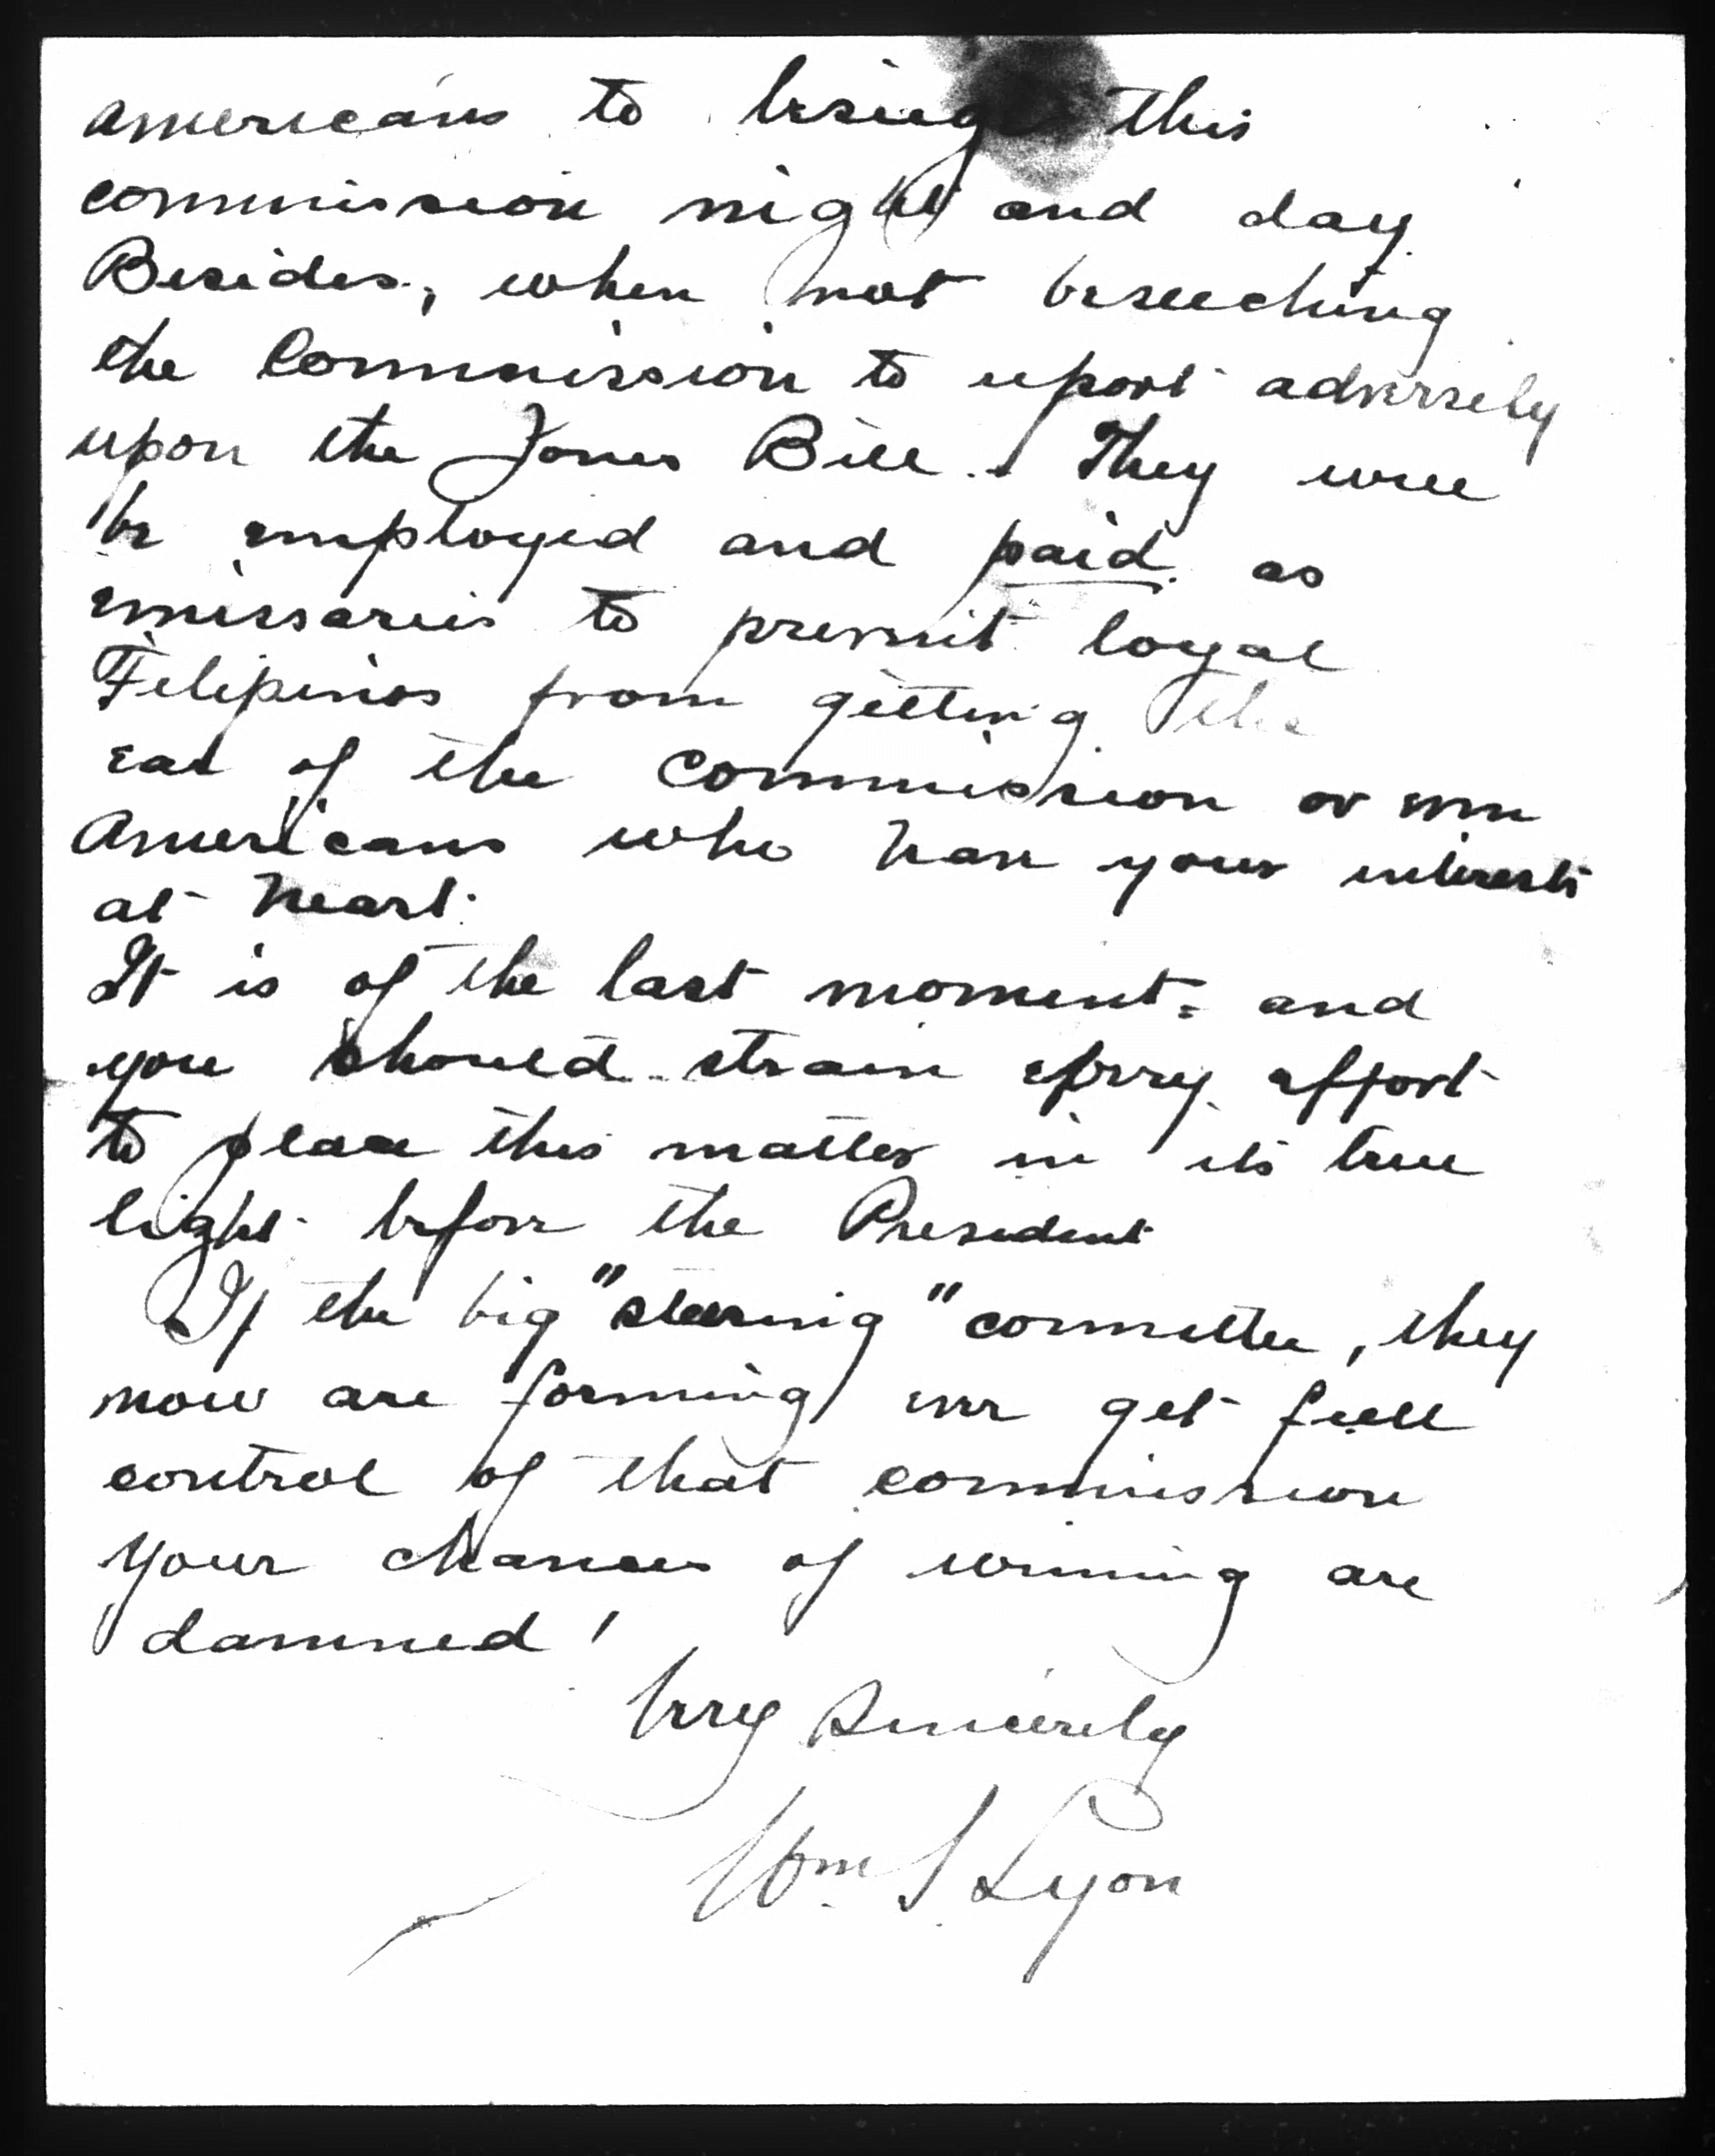 Americans to besiege this
commission night and day.
Besides, when not beseeching
the Commission to report adversely
upon the Jones Bill. They will
be employed and paid as
emissaries to prevent loyal
Filipinos from getting the
ear of the Commission or even
Americans who have your interests
at heart.
It is of the last moment, and
you should strain every effort
to place this matter in its true
light before the President
If the big "steering" committee, they
now are forming ever get full
control of that commission
your chances of winning are
damned!
Very Sincerely
Wm. S Lyon